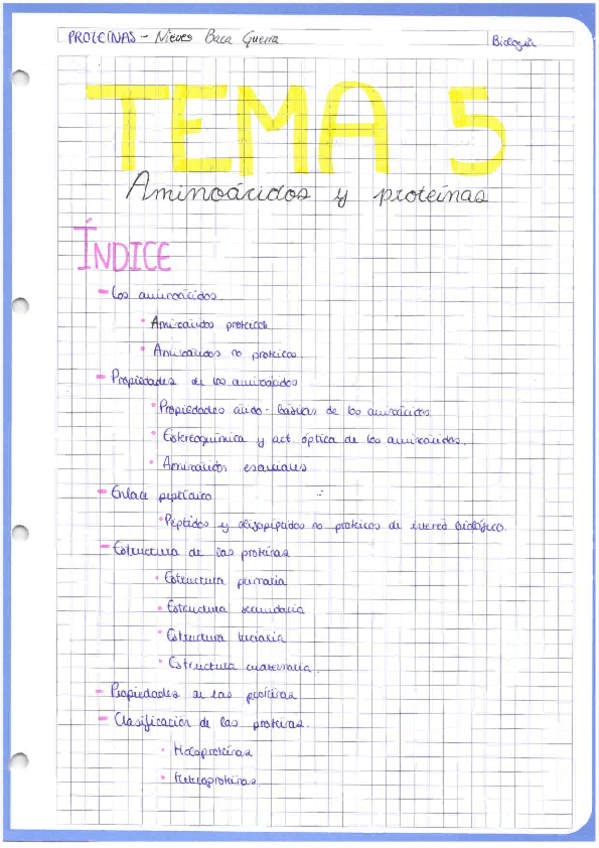 PROTEÍNAS - Nieves Baca Guerra
Biología
TEMA 5
Aminoácidos y proteínas
ÍNDICE
- Los aminoácidos.
· Aminoácidos proteicos
· Aminoácidos no proteicos
- Propiedades de los aminoácidos
· Propiedades ácido-básicas de los aminoácidos
· Estereoquímica y act. óptica de los aminoácidos.
· Aminoácidos esenciales
- Enlace peptídico
· Péptidos y oligopéptidos no proteicos de interés biológico.
- Estructura de las proteínas
· Estructura primaria
· Estructura secundaria
· Estructura terciaria
· Estructura cuaternaria.
- Propiedades de las proteínas
- Clasificación de las proteínas.
· Holoproteínas
· Heteroproteínas